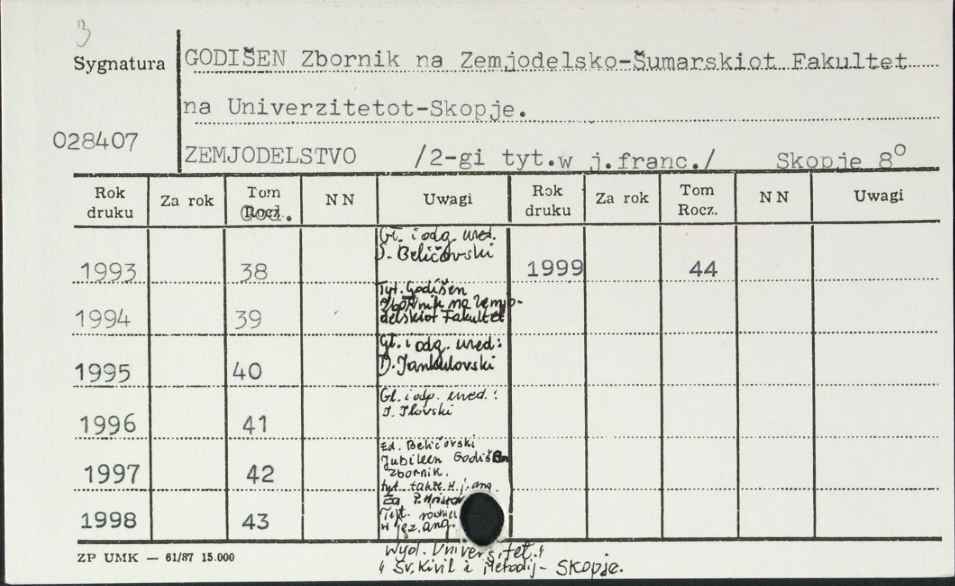 3
Sygnatura
028407
GODIŠEN Zbornik na Zemjodelsko-Šumarskiot Fakultet
na Univerzitetot-Skopje.
ZEMJODELSTVO /2-gi tyt.w j.franc./ Skopje 8°
Rok druku Za rok Tom Rocz. NN Uwagi Rok druku Za rok Tom Rocz. NN Uwagi
1993 38 Gł. i odg. ured.
D. Beličovski
1999 44
1994 39 Tyt. Godišen
Zbornik na Zemjo-
delskiot Fakultet
1995 40 Gł. i odg. ured:
D. Jankulovski
1996 41 Gl. i odp. ured.:
J. Ilovski
1997 42 Ed. Beličovski
Jubileen Godišen
Zbornik.
tyt. także w j. ang.
1998 43 Za
Tyt.
w jęz. ang.
Wyd. Universitet
"Sv. Kiril i Metodij - Skopje.
ZP UMK — 61/87 15.000